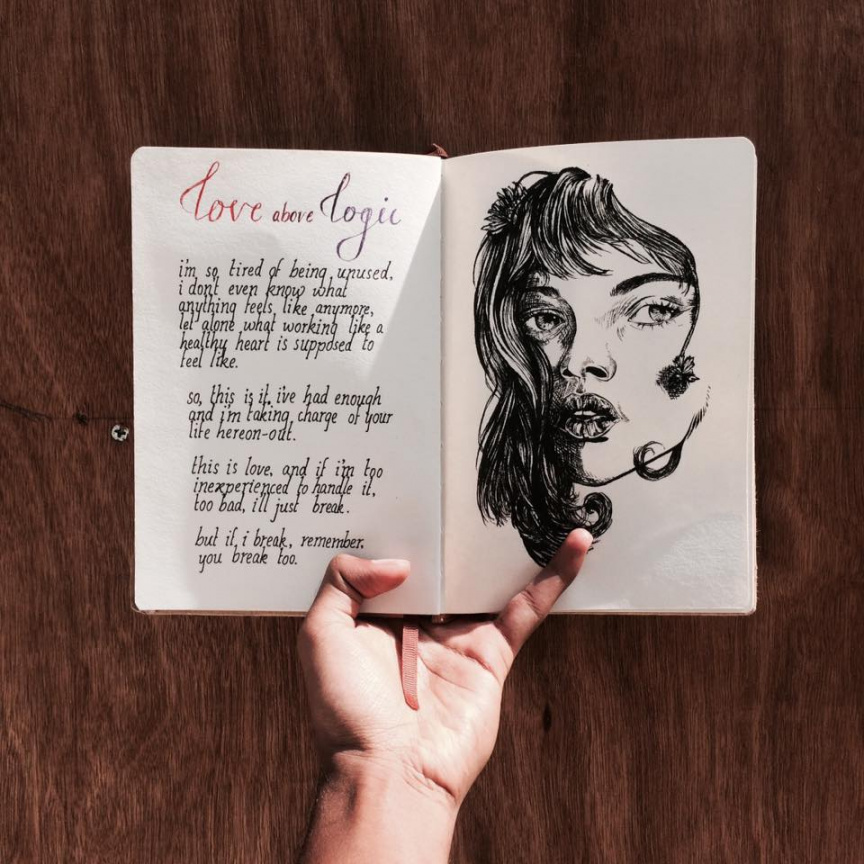 love above logic
i'm so tired of being unused,
i dont even know what
anything feels like anymore,
let alone what working like a
healthy heart is supposed to
feel like.
so, this is it, i've had enough
and i'm taking charge of your
life hereon-out.
this is love, and if i'm too
inexperienced to handle it,
too bad, i'll just break.
but if i break, remember,
you break too.